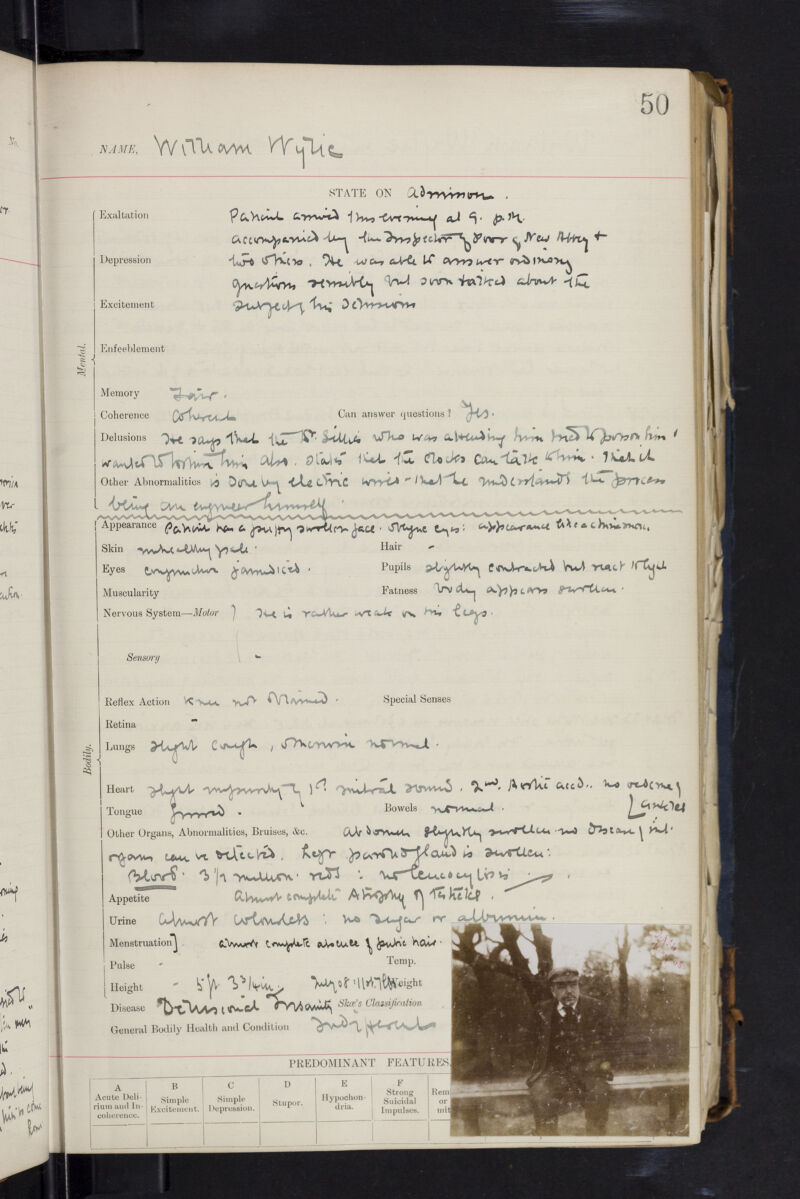 50
NAME, William Wylie
STATE ON admission.
Exaltation Patient arrived this evening at 9. p.m.
accompanied by the Inspector of Poor of New Abbey +
Depression two others. He was able to answer ordinary
questions sensibly but soon talked about the
Excitement subject of his Delusions
Mental.
Enfeeblement
Memory Fair.
Coherence Coherent Can answer questions? Yes.
Delusions He says that the Dr. who was attending him tried to poison him &
wanted to him also. States that the clocks can talk to him. That it
Other Abnormalities is Done by electric wires - that he understands the process
being an engineer himself.
Appearance Patient has a puffy swollen face. eyes: appearance like a chinaman.
Skin unhealthy pale. Hair -
Eyes conjunctiva jaundiced. Pupils slightly contracted but react to light
Muscularity Fatness body appears swollen.
Nervous System—Motor } He is rather weak on his legs.
Sensory -
Reflex Action Knee not obtained. Special Senses
Retina -
Bodily.
Lungs slight cough, otherwise normal.
Heart slight impurity of 1st mitral sound. 2nd. Aortic accd.. no oedema of
ankles
Tongue furred. Bowels normal.
Other Organs, Abnormalities, Bruises, &c. Abdomen slightly swollen no Disease of int.
organs can be detected. Left parotid gland is swollen:
Blood. 3 1/2 million. reds : no leucocytosis
Appetite Almost complete Atrophy of Testicle.
Urine almost colourless : no sugar or albumin.
Menstruation] almost complete absence of pubic hair.
Pulse - Temp.
Height - 5 ft 3 3/4 in July 08 Weight
Disease Delusional Insanity Skae's Classification
General Bodily Health and Condition Indifferent
PREDOMINANT FEATURES.
A B C D E F
Acute Delirium and Incoherence. Simple Excitement. Simple Depression. Stupor. Hypochondria. Strong Suicidal Impulses. Rem
or
mit